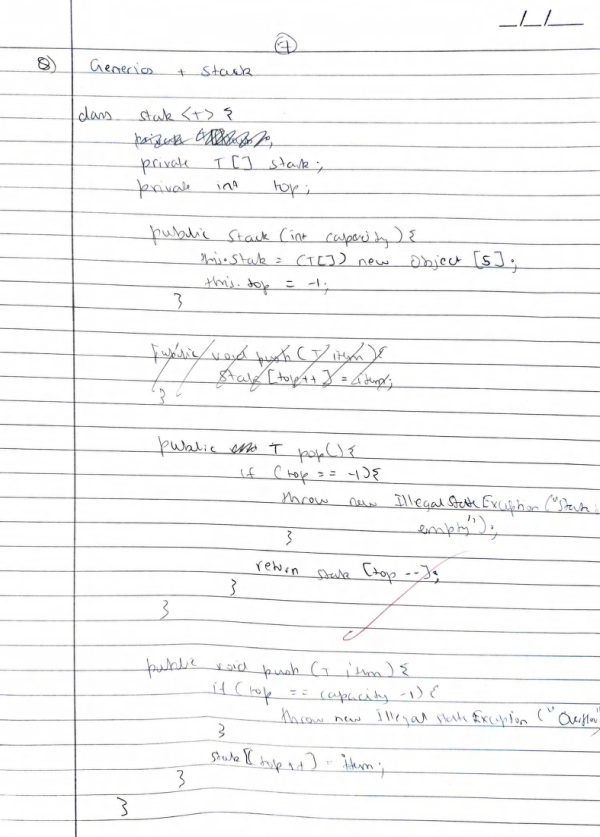 __/__/____
7
Q) Generics + Stack
class stack <T> {
private T[] stack;
private int top;
public Stack (int capacity) {
this.stack = (T[]) new Object [5];
this.top = -1;
}
public void push (T item) {
stack [top++] = item;
}
public T pop() {
if (top == -1) {
throw new IllegalStateException ("Stack
empty");
}
return stack [top --];
}
}
public void push (T item) {
if (top == capacity -1) {
throw new IllegalStateException ("Overflow"
}
stack [top++] = item;
}
}